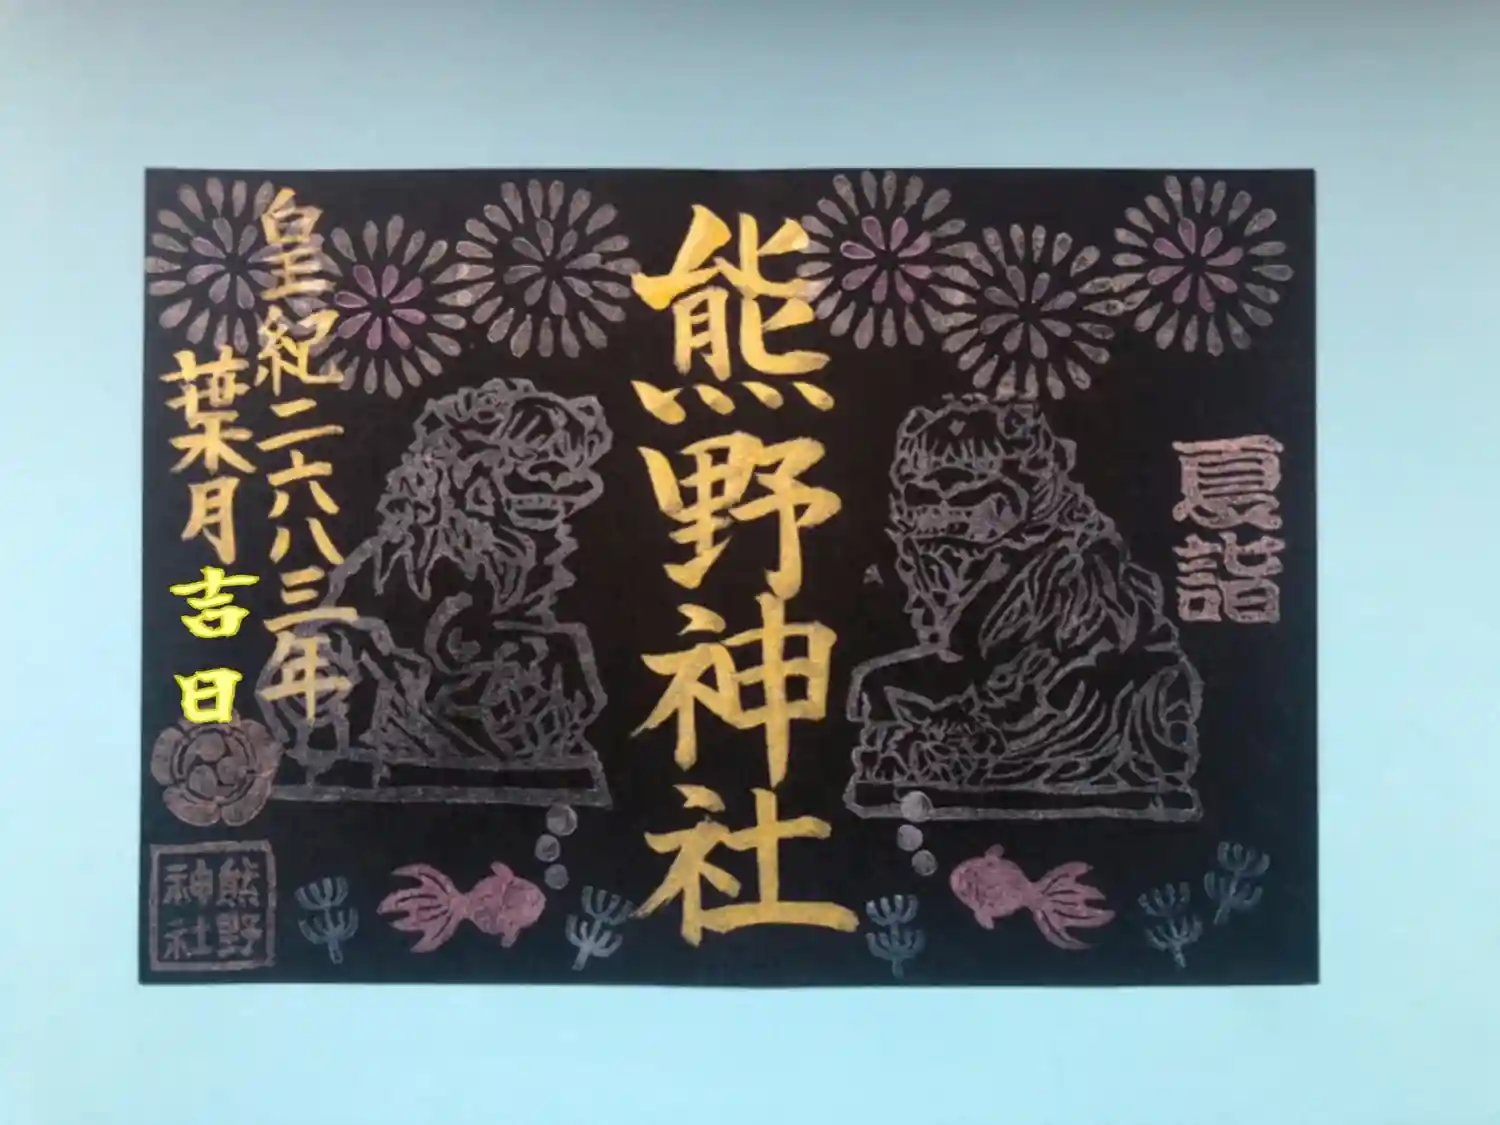 夏詣
熊野神社
皇紀二六八三年
葉月吉日
熊野
神社